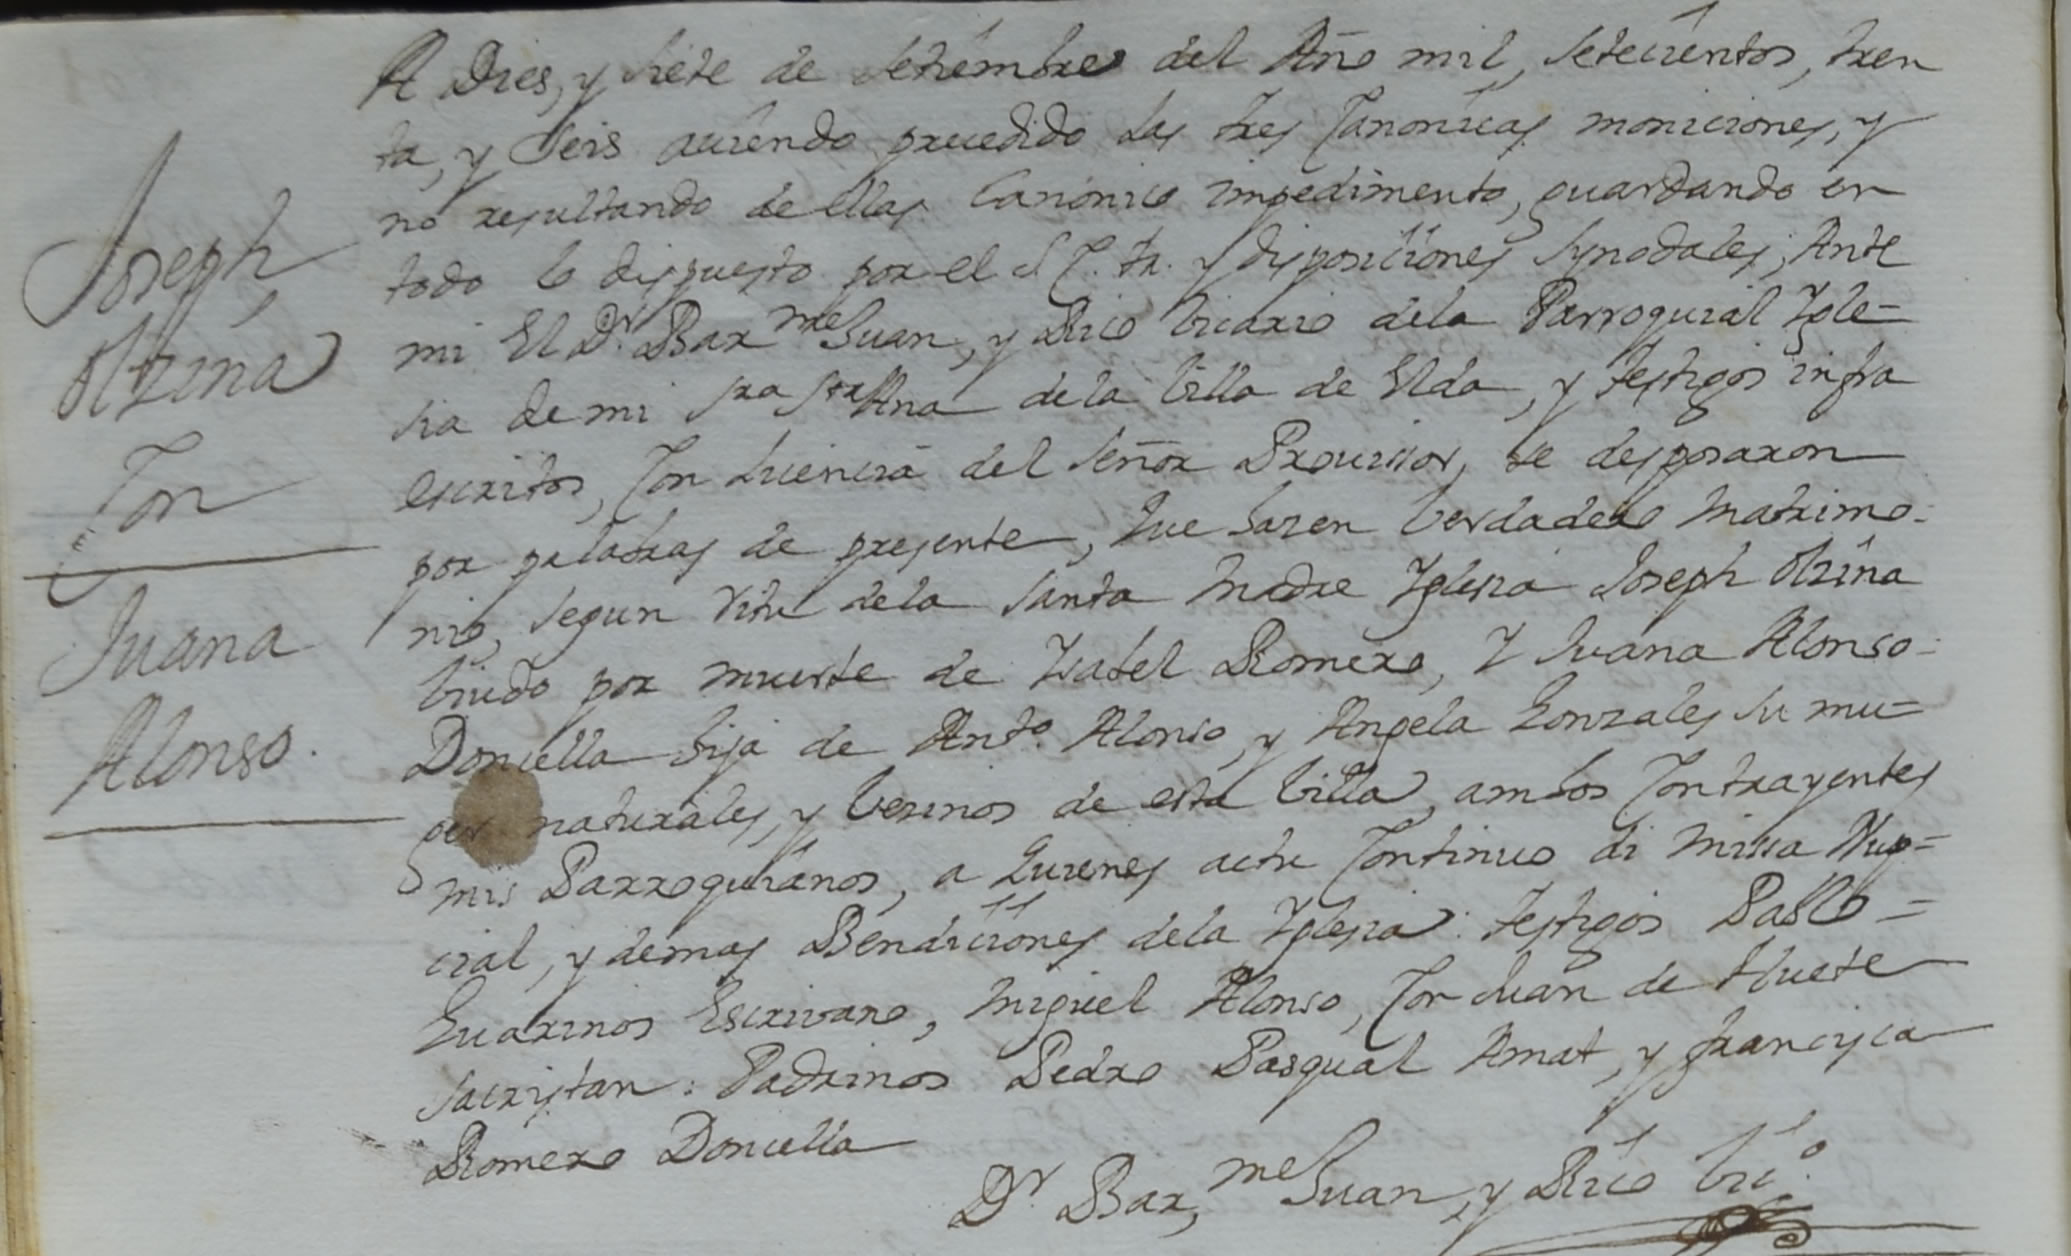 Joseph
Olzina
Con
Juana
Alonso.
A Dies, y siete de Setiembre del Año mil, setecientos, tren
ta, y seis aviendo precedido las tres Canonicas moniciones, y
no resultando de ellas Canonico impedimento, guardando en
todo lo dispuesto por el S. C. Tr. y disposiciones Synodales; Ante
mi El Dr. Barme Juan, y Rico Vicario dela Parroquial Igle=
sia de mi Sra Sta Ana de la Villa de Elda, y testigos infra
escritos, Con licencia del Señor Provissor, se desposaron
por palabras de presente, que hazen verdadero Matrimo-
nio, segun ritu dela Santa Madre Yglesia Joseph Olzina
viudo por muerte de Ysabel Romero, Y Juana Alonso-
Doncella hija de Anto. Alonso, y Angela Gonzales su mu=
ger naturales, y vezinos de esta Villa, ambos Contrayentes
mis Parroquianos, a Quienes actu Continuo di Missa Nup=
cial, y demas Bendiciones dela Yglesia: testigos Pablo=
Guarinos Escrivano, Miguel Alonso, Con Juan de Huete
Sacristan: Padrinos Pedro Pasqual Amat, y Francisca
Romero Doncella
Dr. Barme Juan, y Rico Vico.